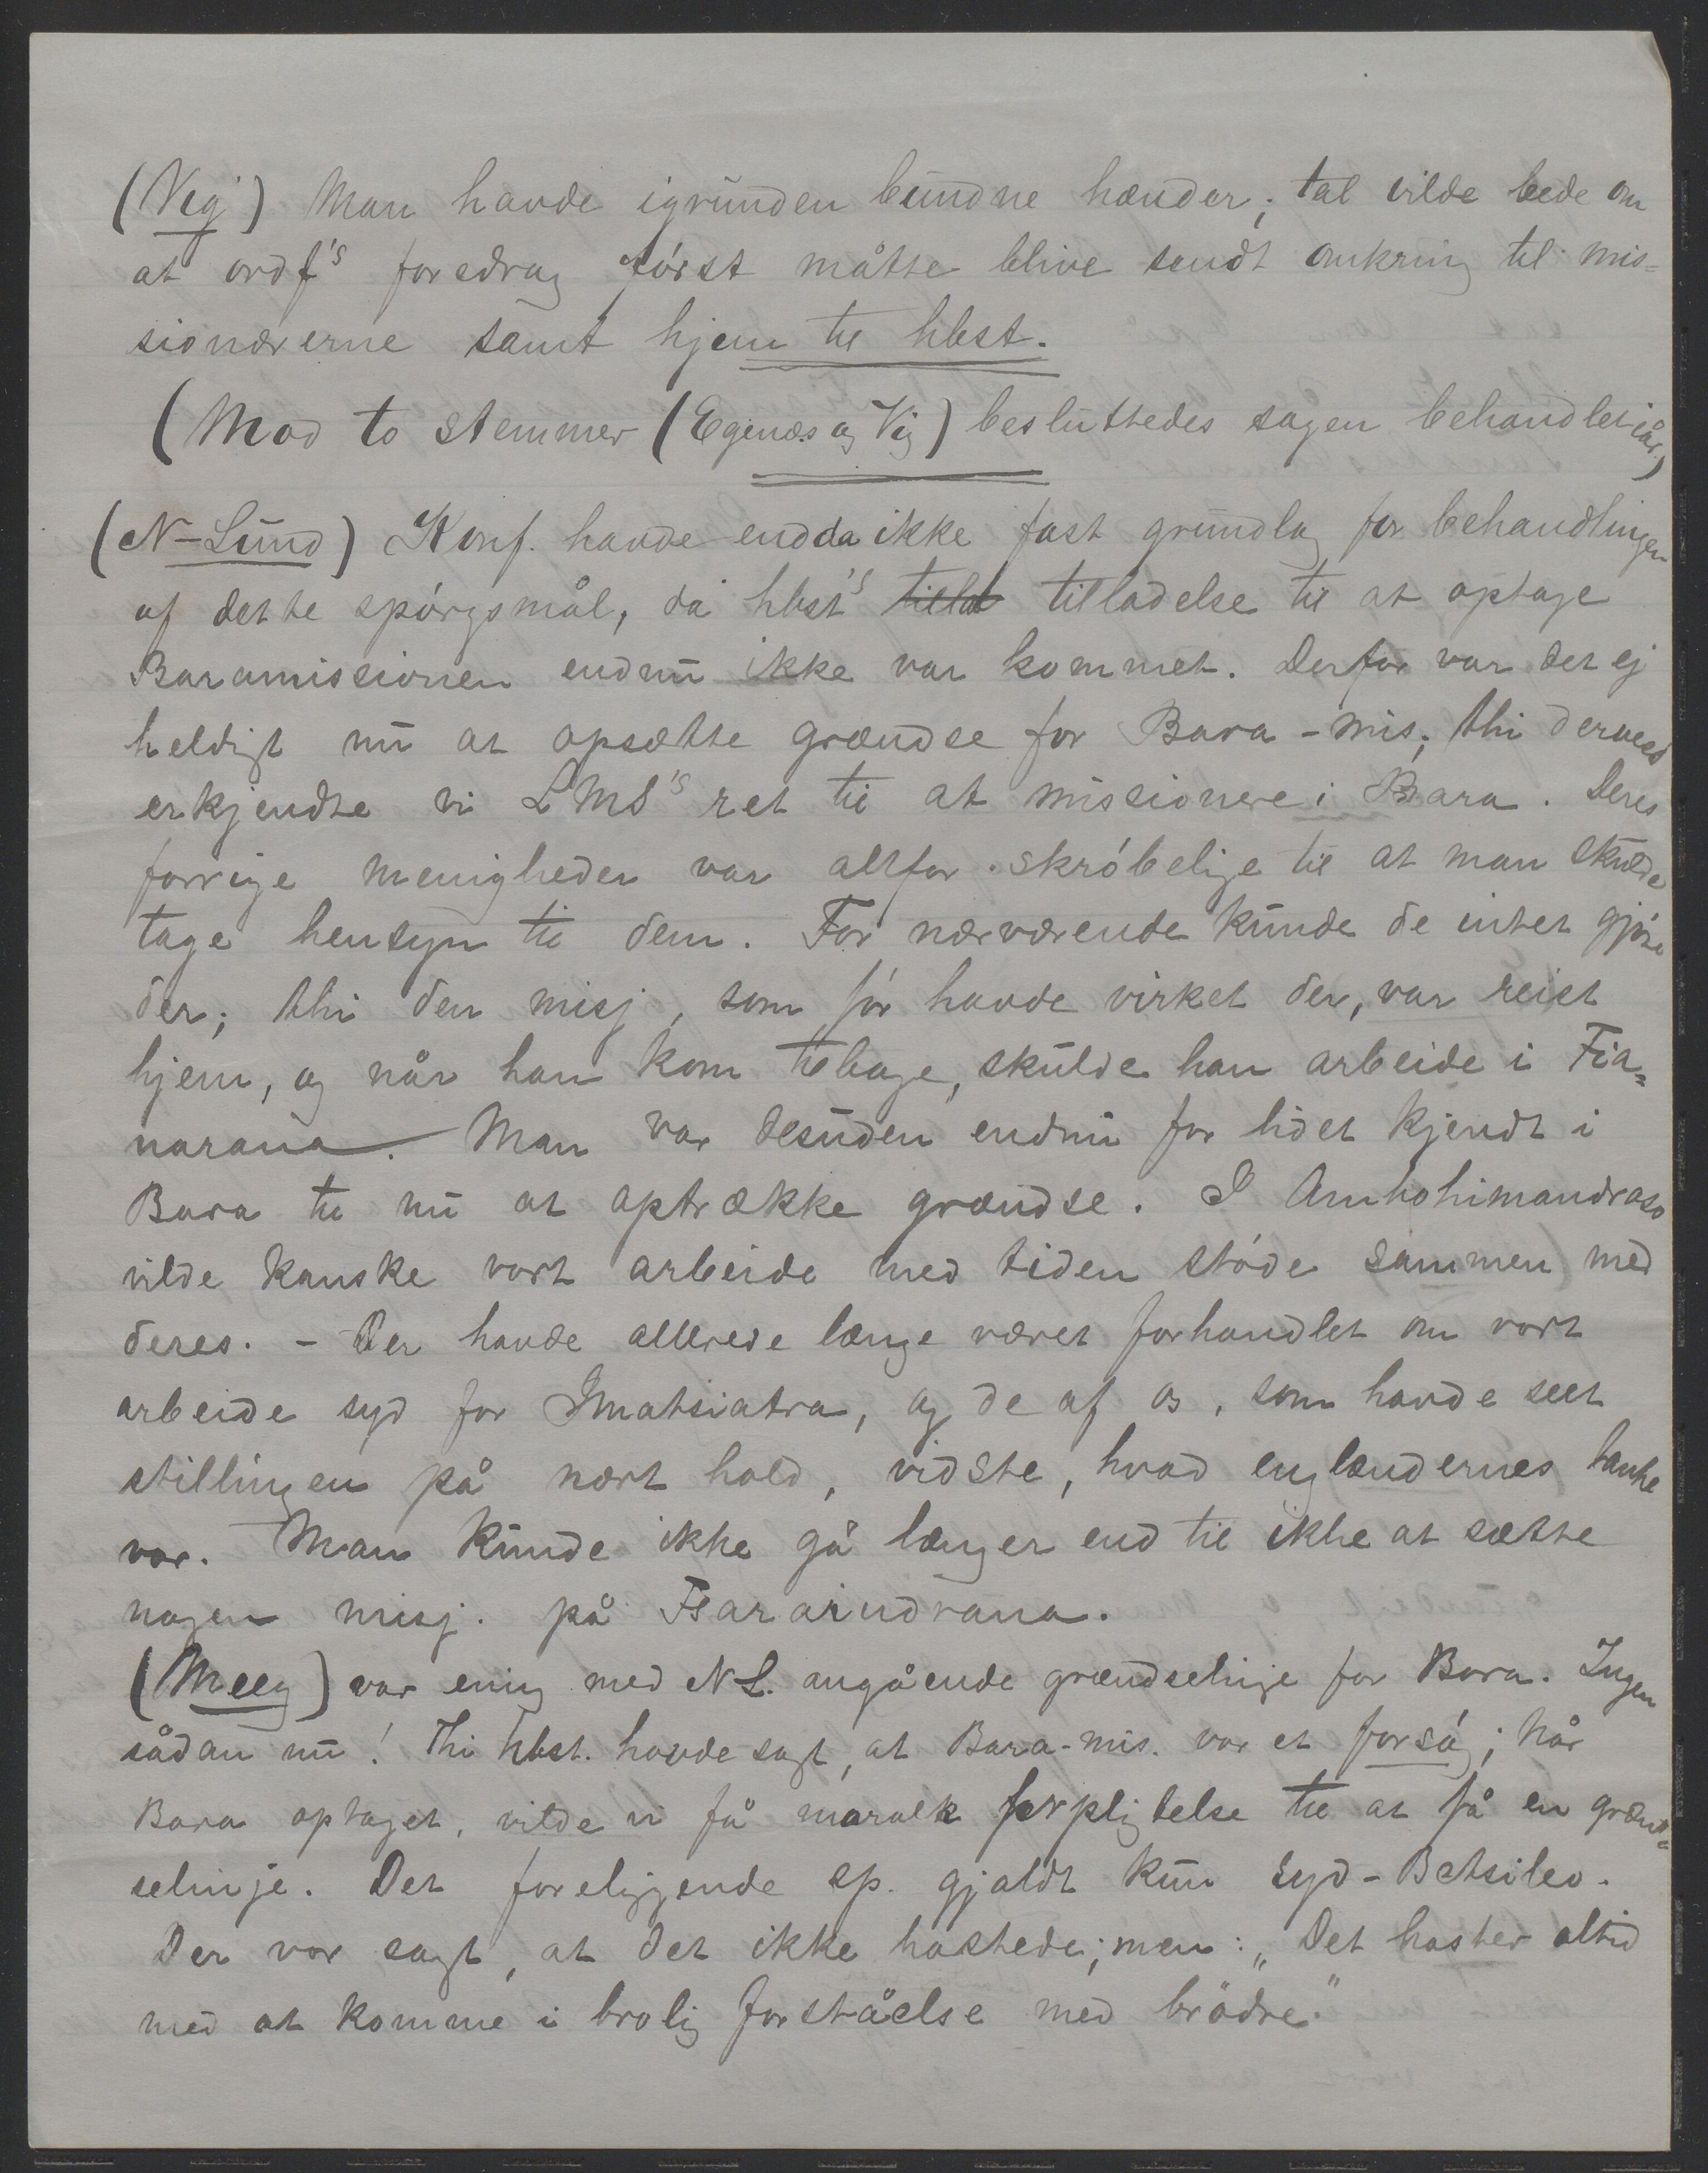 (Vig) Man havde igrunden bundne hænder; tal vilde bede om
at ordf's foredrag først måtte blive sendt omkring til mis=
sionærerne samt hjem til hbst.
(Mod to stemmer (Egenæs og Vig) besluttedes sagen behandlet iår.)
(N-Lund) Konf. havde endda ikke fast grundlag for behandlingen
af dette spórgsmål, da hbst's tillat tilladelse til at optage
Baramissionen endnu ikke var kommet. Derfor var det ej
heldigt nu at opsætte grændse for Bara-mis; thi derved
erkjendte vi LMS's ret til at missionere i Bara. Deres
forrige menigheder var altfor skróbelige til at man skulde
tage hensyn til dem. For nærværende kunde de intet gjóre
der; thi den misj, som fór havde virket der, var reist
hjem, og når han kom tilbage, skulde han arbeide i Fia=
narana. Man var desuden endnu for lidet kjendt i
Bara til nu at optrække grændse. I Ambohimandroso
vilde kanske vort arbeide med tiden stóde sammen med
deres. - Der havde allerede længe været forhandlet om vort
arbeide syd for Imatsiatra, og de af os, som havde seet
stillingen på nært hold, vidste, hvad englændernes tanke
var. Man kunde ikke gå længer end til ikke at sætte
nogen misj. på Tsaraindrana.
(Meeg) var enig med NL. angående grændselinje for Bara. Ingen
sådan nu! Thi hbst. havde sagt, at Bara-mis. var et forsóg; når
Bara optaget, vilde vi få moralsk forpligtelse til at få en grænd=
selinje. Det foreliggende sp. gjaldt kun Syd-Betsileo.
Der var sagt, at det ikke hastede; men: „Det haster altid
med at komme i brolig forståelse med brödre."